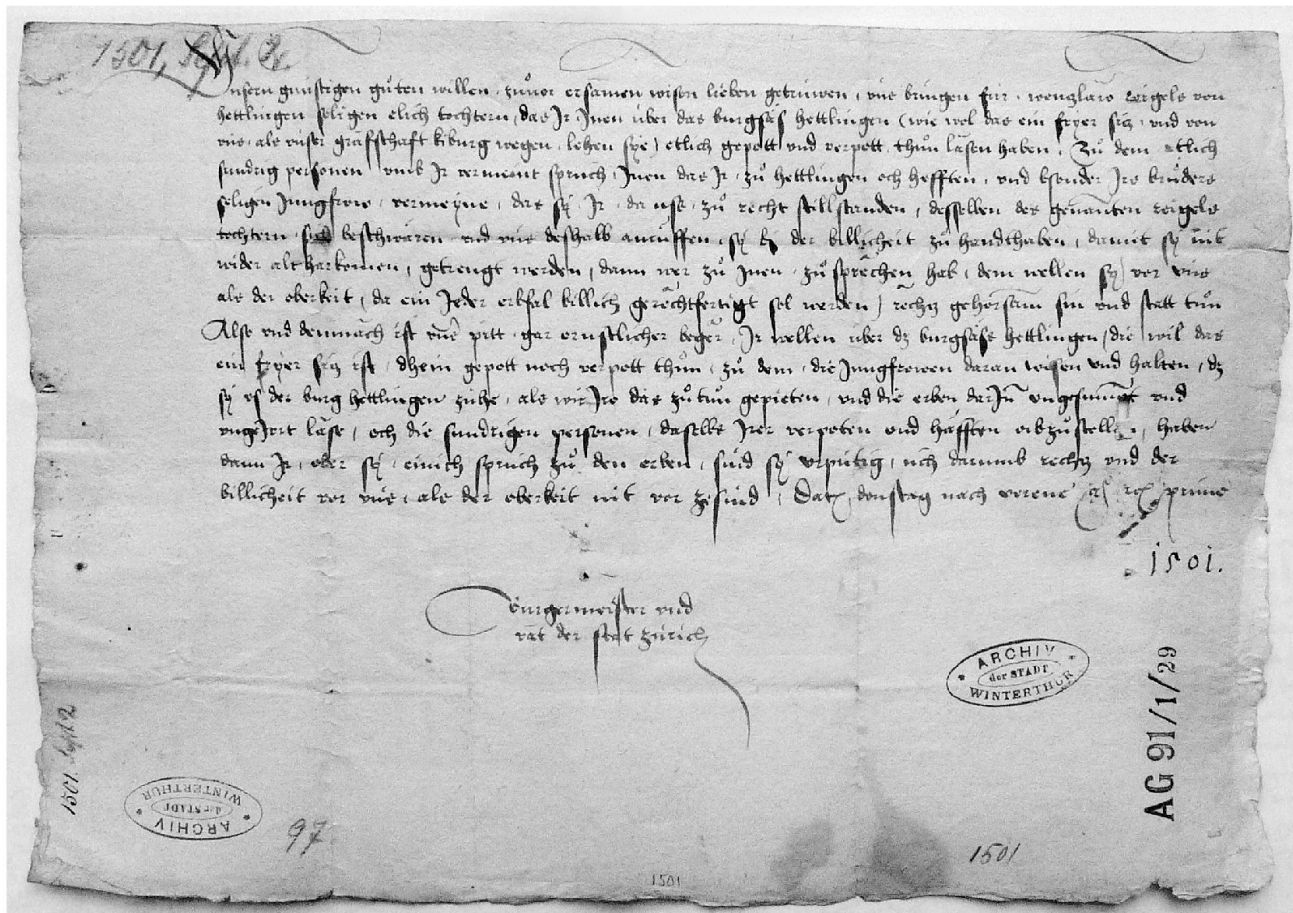 1501, Sept. 2.
Unsern günstigen gůten willen zůvor ersamen wisen lieben getrüwen, uns bringen für, wenzlaw weigels von
hettlingen seligen elich tochtern, das Ir Inen über das burgsäs hettlingen (wie wol das ein fryer sitz und von
uns, als unser graffschaft kiburg wegen, lehen sye) etlich gepott und verpott, thůn läsen haben, Zů dem etlich
sundrig personen umb Ir vermeint spruch, Inen das Ir, zů hettlingen och hefften, und bsonder Irs brůders
seligen Jungfrow, vermeyne, das sÿ Ir, da use, zů recht stillstanden, desselben der genanten weigels
tochtern sich beschwären und uns deshalb anrůffen, sÿ bÿ der billicheit zů handthaben, damit sÿ nit
wider alt harkomen, getrengt werden, dann wer zů Inen, zů sprächen hab, dem wellen sÿ vor uns
als der oberkeit, da ein Jeder erbfal billich gerächtfertigt sol werden, rächtz gehorsam sin und statt tůn
Also und demnäch ist unser pitt gar ernstlicher beger, Ir wellen über dz burgsäse hettlingen, die wil das
ein fryer sitz ist, dhein gepott noch verpott thůn, zů dem, die Jungfrowen daran wisen und halten, dz
sÿ us der burg hettlingen ziche, als wir Iro das zůtůn gepieten, und die erben darIn ungesumpt und
ungeIrt läse, och die sundrigen personen, daselbs Irer verpoten und häfften abzůstellen, haben
dann Ir, oder sÿ, einich spruch zů den erben, sind sÿ urpütig, uch darumb rechtz und der
billicheit vor uns, als der oberkeit nit vor ze sind, Datum donstag nach verene
1501.
Burgermeister und
rät der statt zürich
ARCHIV
der STADT
WINTERTHUR
AG 91/1/29
1501 Sept 2
ARCHIV
der STADT
WINTERTHUR
97
1501
1501